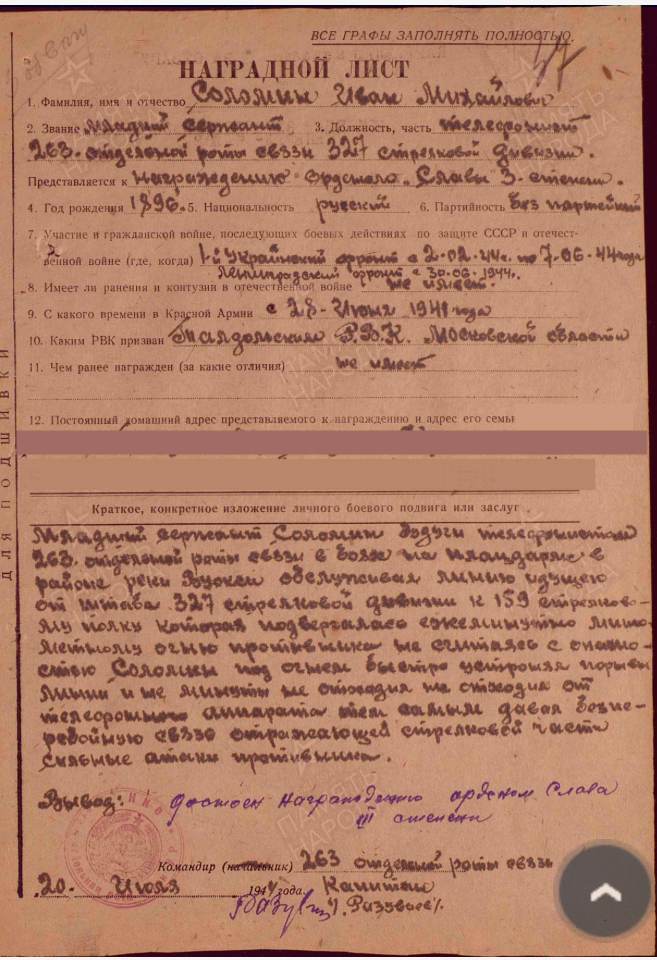 ВСЕ ГРАФЫ ЗАПОЛНЯТЬ ПОЛНОСТЬЮ.
НАГРАДНОЙ ЛИСТ
1. Фамилия, имя и отчество Соломин Иван Михайлович
2. Звание младший сержант 3. Должность, часть телефонист
263 отдельной роты связи 327 стрелковой дивизии.
Представляется к награждению орденом „Славы 3-степени.
4. Год рождения 1896. 5. Национальность русский 6. Партийность без партейный
7. Участие в гражданской войне, последующих боевых действиях по защите СССР и отечест-
венной войне (где, когда) 1-й Украинский фронт с 2.02.44г. по 7.06.44 года
Ленинградский фронт с 30.06.1944г.
8. Имеет ли ранения и контузии в отечественной войне не имеет.
9. С какого времени в Красной Армии с 28-Июня 1941 года
10. Каким РВК призван Талдольским Р.В.К. Московской области
11. Чем ранее награжден (за какие отличия) не имеет
12. Постоянный домашний адрес представляемого к награждению и адрес его семьи
ДЛЯ ПОДШИВКИ
Краткое, конкретное изложение личного боевого подвига или заслуг
Младший сержант Соломин будучи телефонистом
263 отдельной роты связи в боях на плацдарме в
районе реки Вуокси обслуживал линию идущею
от штаба 327 стрелковой дивизии к 159 стрелково-
му полку которая подвергалась ежеминутно мино-
метному огню противника не считаясь с опасно-
стью Соломин под огнем быстро устронял порывы
линии и не минуты не отходил не отходил от
телефонного аппарата тем самым давал беспе-
ребойную связь отражающей стрелковой части
сильные атаки противника.
Вывод: достоен награждению орденом Слава
III степени
Командир (начальник) 263 отдельной роты связи
„20„ Июля 1944 года. Капитан